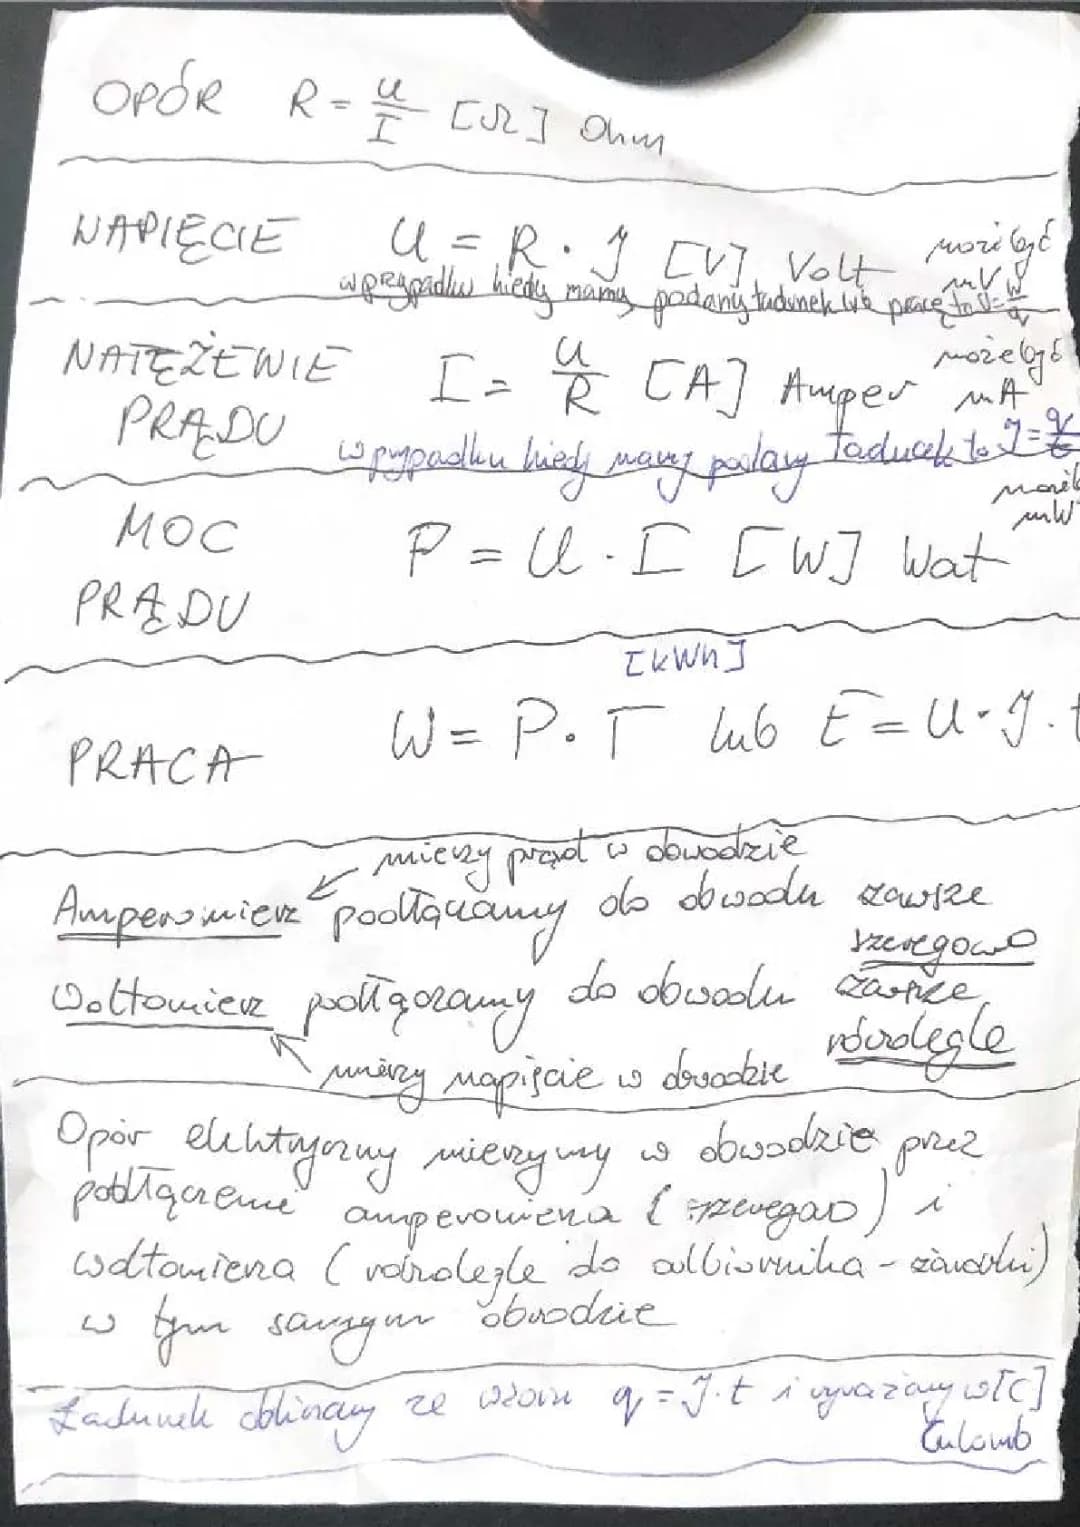 OPÓR R = U/I [Ω] Ohm
NAPIĘCIE U = R · J [V] Volt może być mV
w przypadku kiedy mamy podany ładunek lub pracę to U = W/q
NATĘŻENIE PRĄDU I = U/R [A] Amper może być mA
w przypadku kiedy mamy podany ładunek to J = q/t
MOC PRĄDU P = U · I [W] Wat może mW
[kWh]
PRACA W = P · T lub E = U · J · t
mierzy prąd w obwodzie
Amperomierz podłączamy do obwodu zawsze
szeregowo
Woltomierz podłączamy do obwodu zawsze
równolegle
mierzy napięcie w obwodzie
Opór elektryczny mierzymy w obwodzie przez
podłączenie amperomierza (szeregowo) i
woltomierza (równolegle do odbiornika - żarówki)
w tym samym obwodzie
Ładunek obliczamy ze wzoru q = J · t i wyrażamy w [C]
Culomb